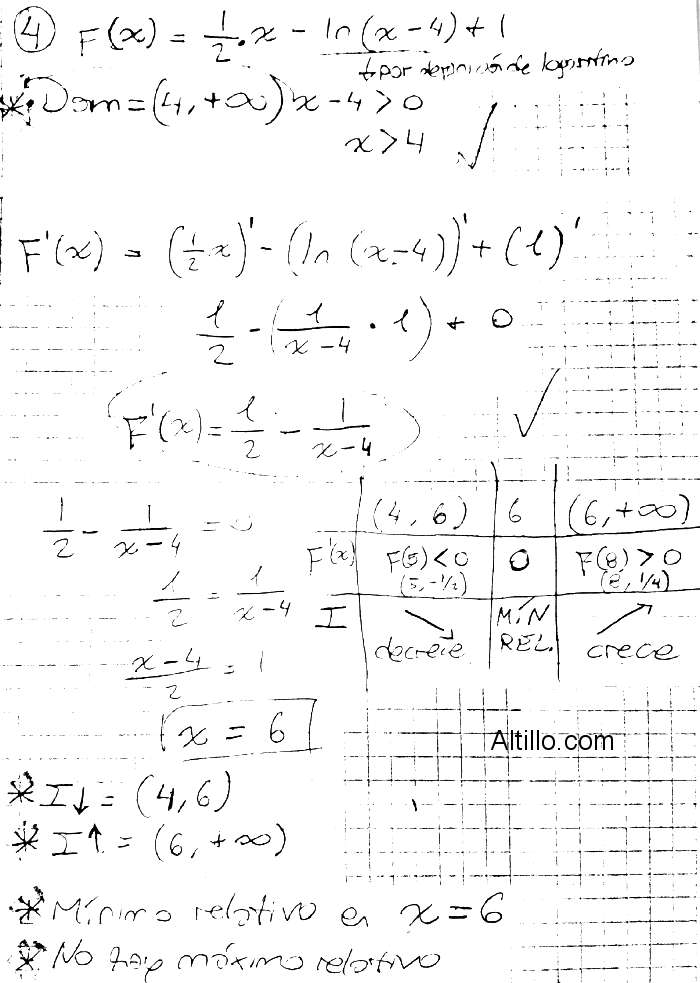 ④ F(x) = 1/2 · x - ln(x-4) + 1
por definición de logaritmo
* Dom = (4, +∞) x-4 > 0
x > 4 ✓
F'(x) = (1/2 x)' - (ln (x-4))' + (1)'
1/2 - (1/(x-4) · 1) + 0
F'(x) = 1/2 - 1/(x-4) ✓
1/2 - 1/(x-4) = 0
1/2 = 1/(x-4)
(x-4)/2 = 1
x = 6
(4, 6) 6 (6, +∞)
F'(x) F(5) < 0 0 F(8) > 0
(5, -1/2) (8, 1/4)
I ↘ MÍN ↗
decrece REL. crece
Altillo.com
* I↓ = (4, 6)
* I↑ = (6, +∞)
* Mínimo relativo en x = 6
* No hay máximo relativo